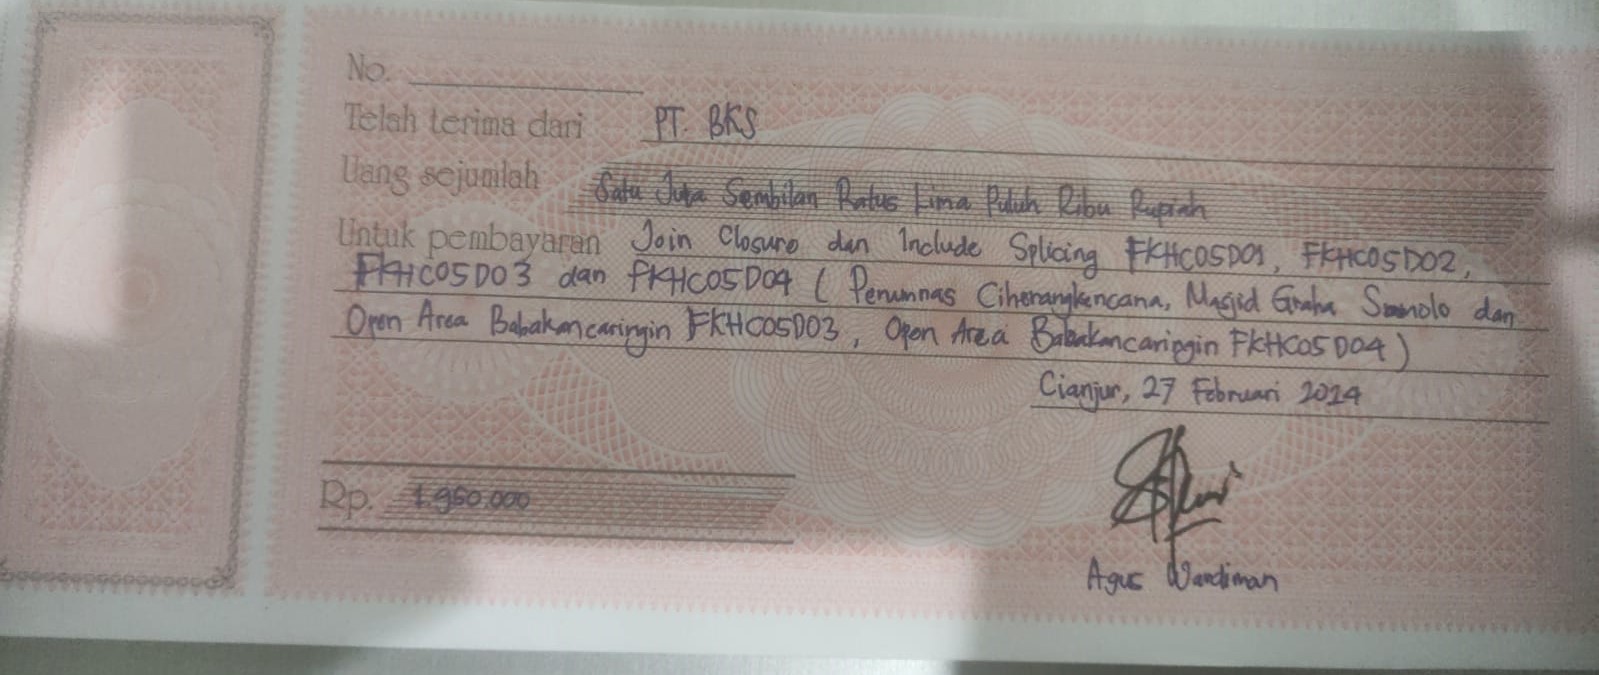 No.
Telah terima dari PT. BKS
Uang sejumlah Satu Juta Sembilan Ratus Lima Puluh Ribu Rupiah
Untuk pembayaran Join Closure dan Include Splicing FKHC05D01, FKHC05D02,
FKHC05D03 dan FKHC05D04 ( Perumnas Ciherangkencana, Masjid Graha dan
Open Area Babakancaringin FKHC05D03, Open Area Babakancaringin FKHC05D04)
Cianjur, 27 Februari 2024
Rp. 1.950.000
Agus Wandiman